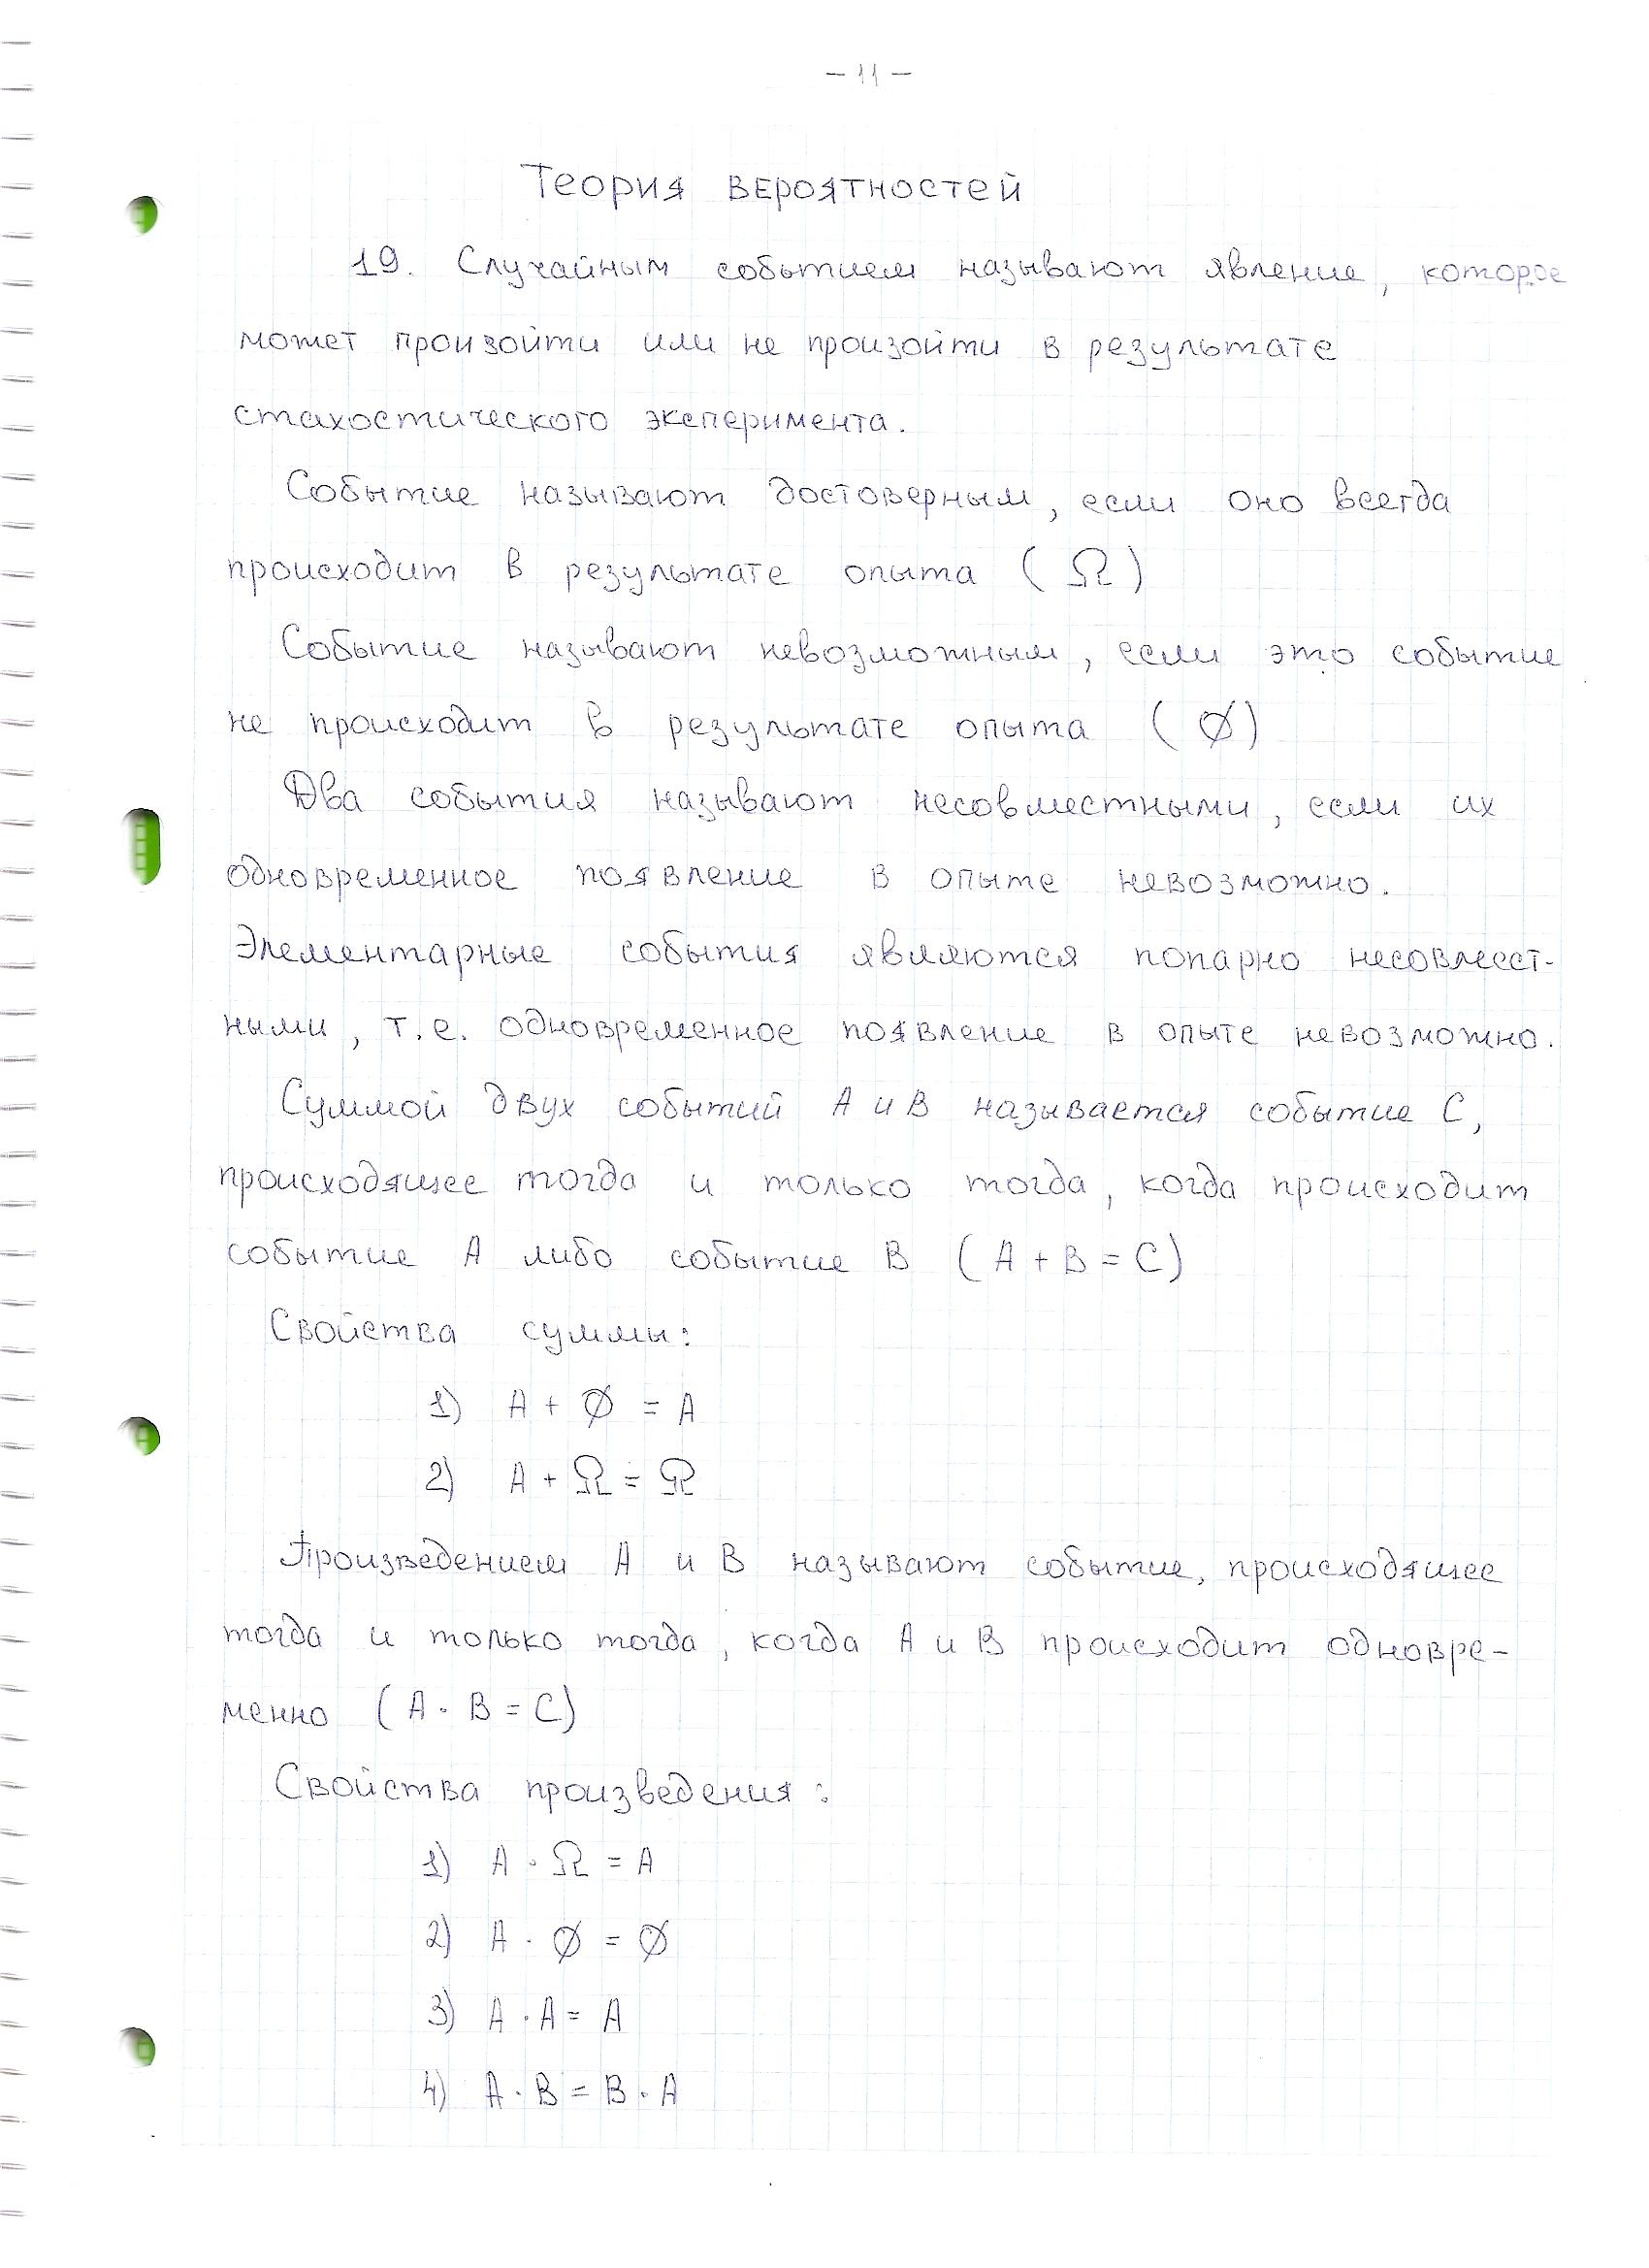 - 11 -
Теория вероятностей
19. Случайным событием называют явление, которое
может произойти или не произойти в результате
стахостического эксперимента.
Событие называют достоверным, если оно всегда
происходит в результате опыта (Ω)
Событие называют невозможным, если это событие
не происходит в результате опыта (∅)
Два события называют несовместными, если их
одновременное появление в опыте невозможно.
Элементарные события являются попарно несовмест-
ными, т.е. одновременное появление в опыте невозможно.
Суммой двух событий А и В называется событие С,
происходящее тогда и только тогда, когда происходит
событие А либо событие В (А + В = С)
Свойства суммы:
1) А + ∅ = А
2) А + Ω = Ω
Произведением А и В называют событие, происходящее
тогда и только тогда, когда А и В происходит одновре-
менно (А · В = С)
Свойства произведения:
1) А · Ω = А
2) А · ∅ = ∅
3) А · А = А
4) А · В = В · А